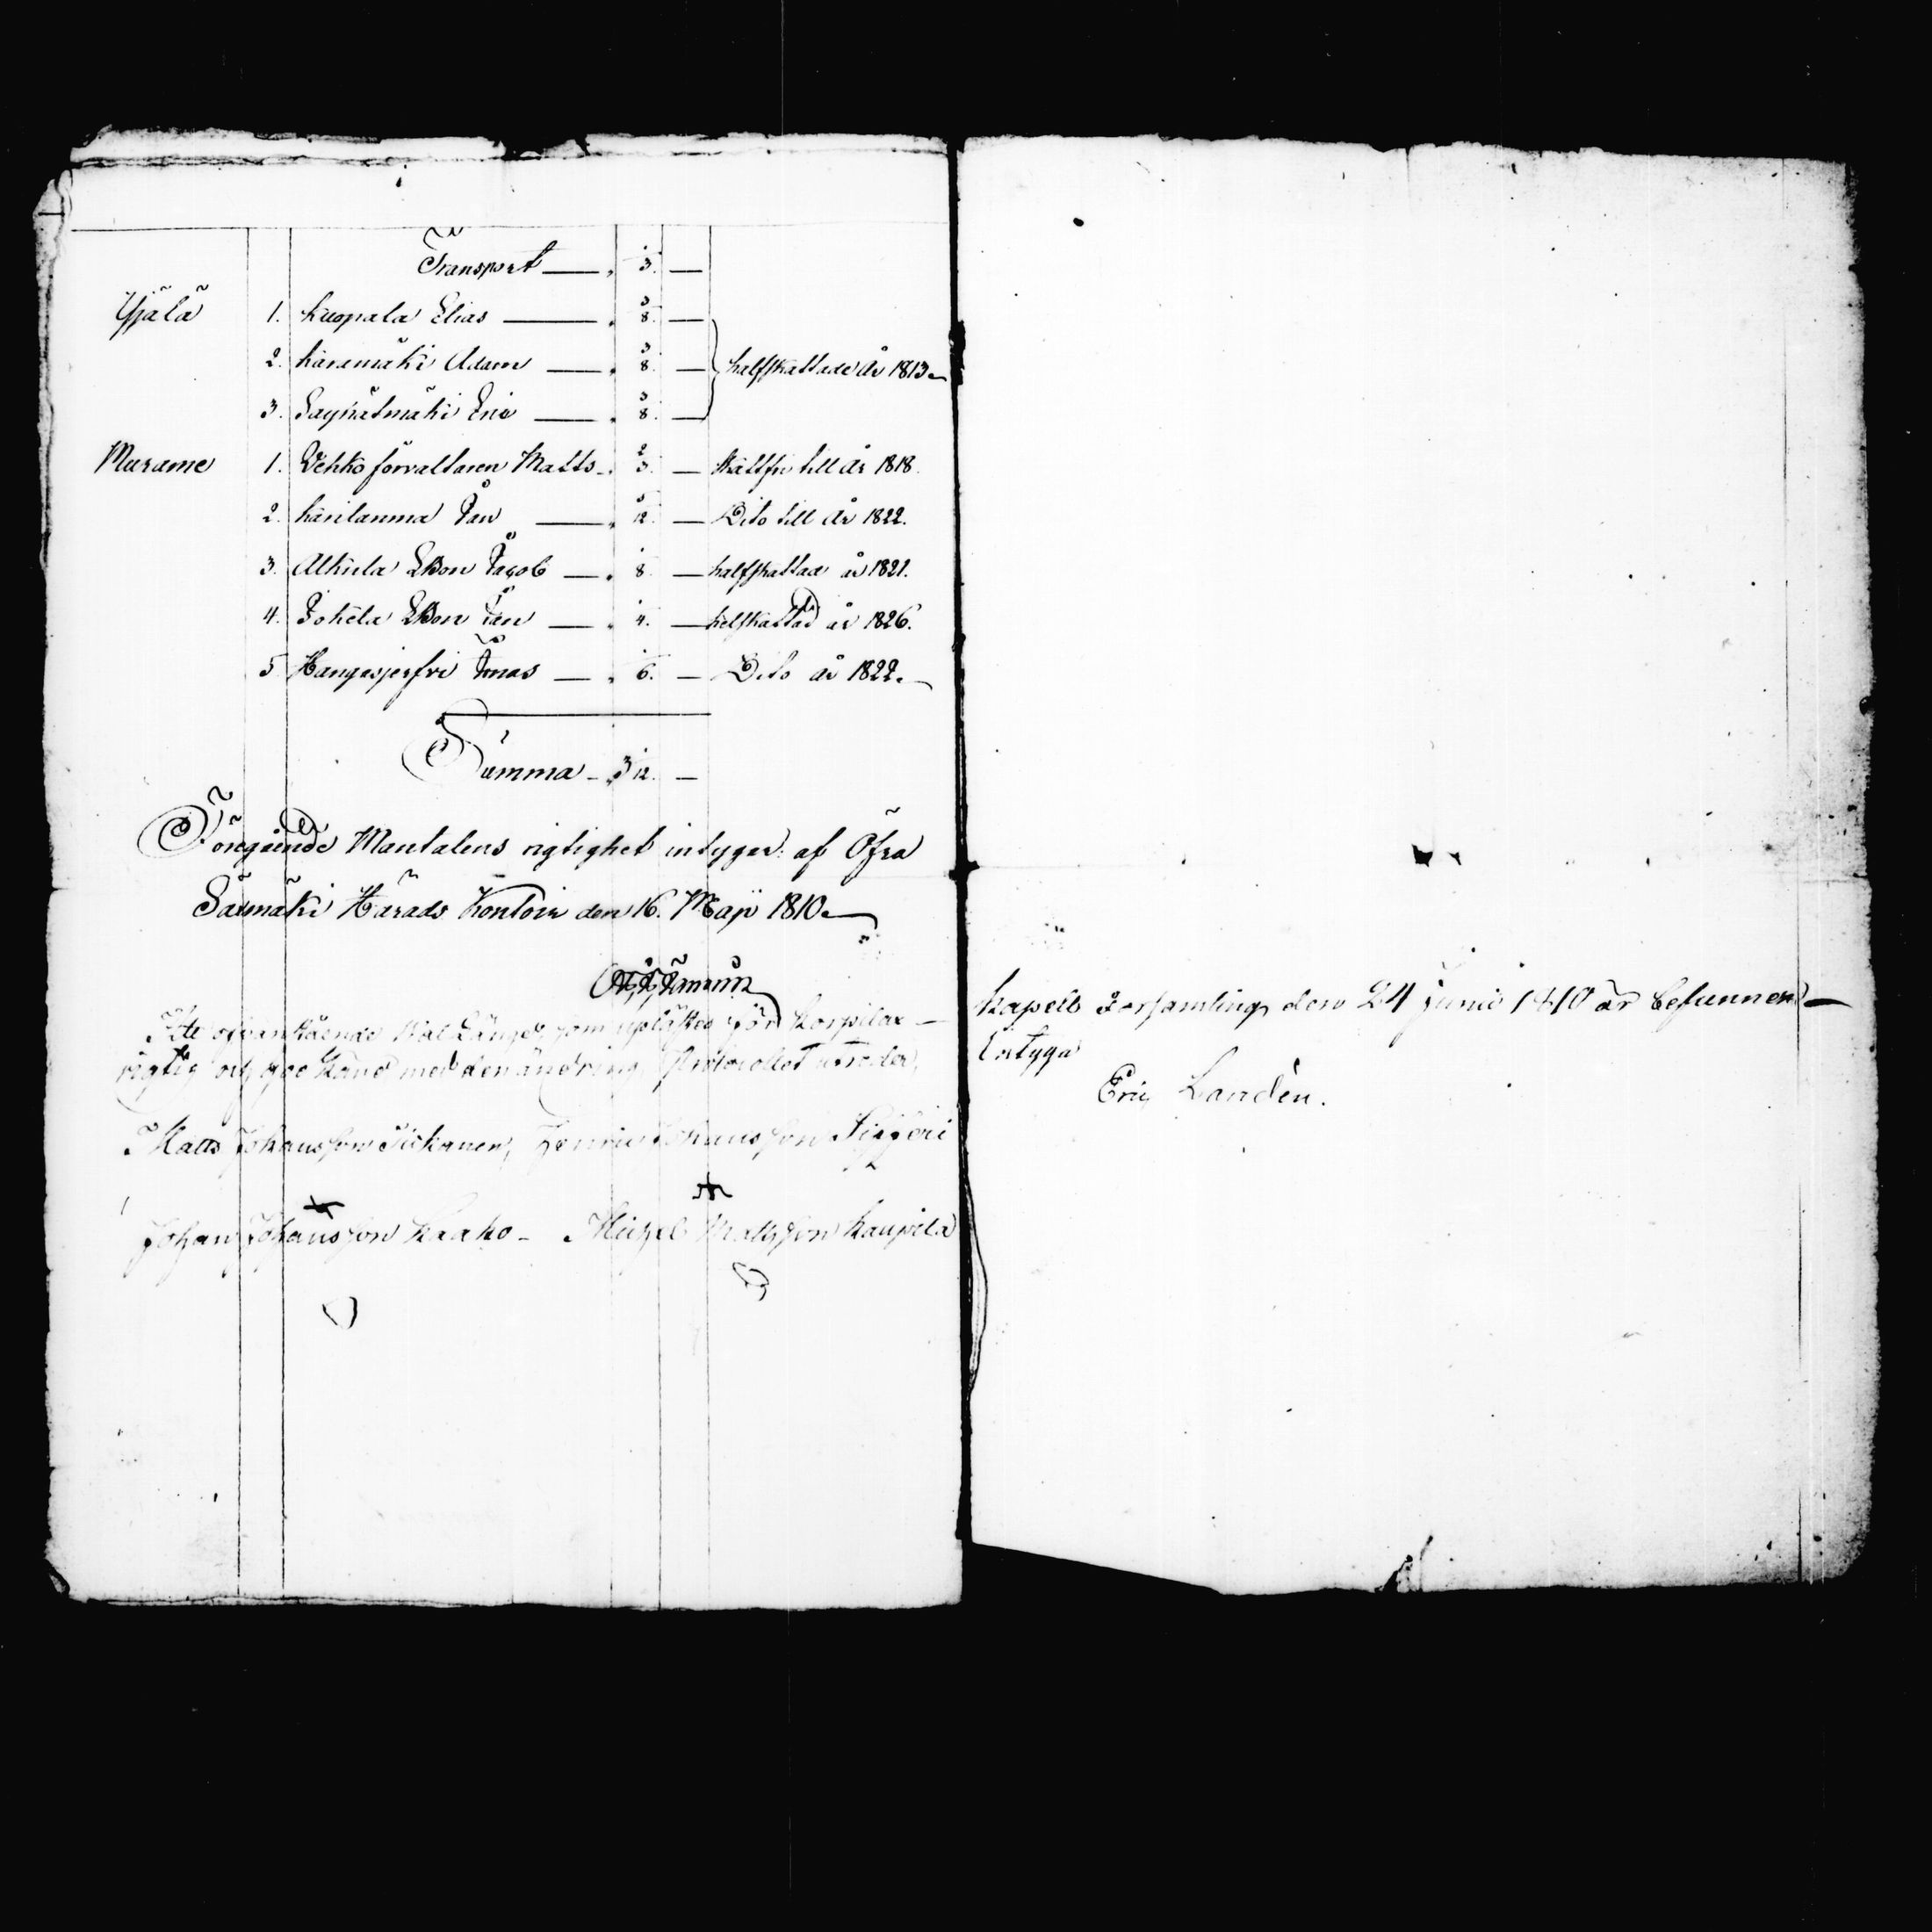 Transport — 3. —
Ylijälä 1. Kuopala Elias — 3/8. —
2. Käramäki Adam — 3/8. — halfskattade År 1813
3. Säynätmäki Eric — 3/8. —
Murame 1. Vehko förvaltaren Matts 2/3. — Skattfri till År 1818.
2. Kärilanma Jan — 5/12. — Dito till År 1822.
3. Alkula EBon Jacob — 1/8. — halfskattad år 1821.
4. Jokela EBon Jan — 1/4. — helskattad år 1826.
5. Hangasjerfvi Tomas — 1/6. — Dito år 1822.
Summa 3
Föregående Mantalens rigtighet intygar af Öfra
Säxmäki Härads Kontoir den 16. Maji 1810
At ofvanstående Wal Längd som uplästes för Korpilax
rigtig och god känd med den ändring Protocollet utvisar,
Matts Johansson Kiskanen, Henric Johansson Sipperi
Johan Johansson Kaako — Michel Mattsson Kaupila
Kapells Församling den 24 Junii 1810 är befunnen —
intyga
Eric Landén.